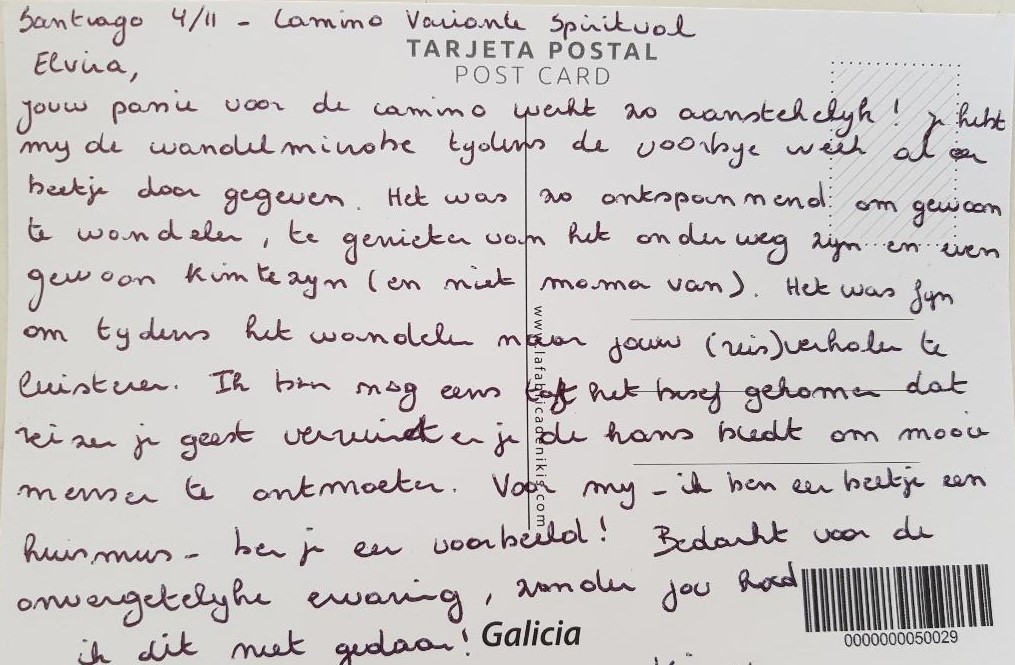 Santiago 4/11 - Camino Variante Spiritual
TARJETA POSTAL
POST CARD
Elvira,
jouw passie voor de camino werkt zo aanstekelijk! Je hebt
mij de wandelmicrobe tijdens de voorbije week al een
beetje door gegeven. Het was zo ontspannend om gewoon
te wandelen, te genieten van het onderweg zijn en even
gewoon Kim te zijn (en niet mama van). Het was fijn
om tijdens het wandelen naar jouw (reis)verhalen te
luisteren. Ik ben nog eens tot het besef gekomen dat
reizen je geest verruimt en je de kans biedt om mooie
mensen te ontmoeten. Voor mij - ik ben een beetje een
huismus - ben je een voorbeeld! Bedankt voor de
onvergetelijke ervaring, zonder jou had
ik dit niet gedaan!
www.lafabricadenikis.com
Galicia
0000000050029